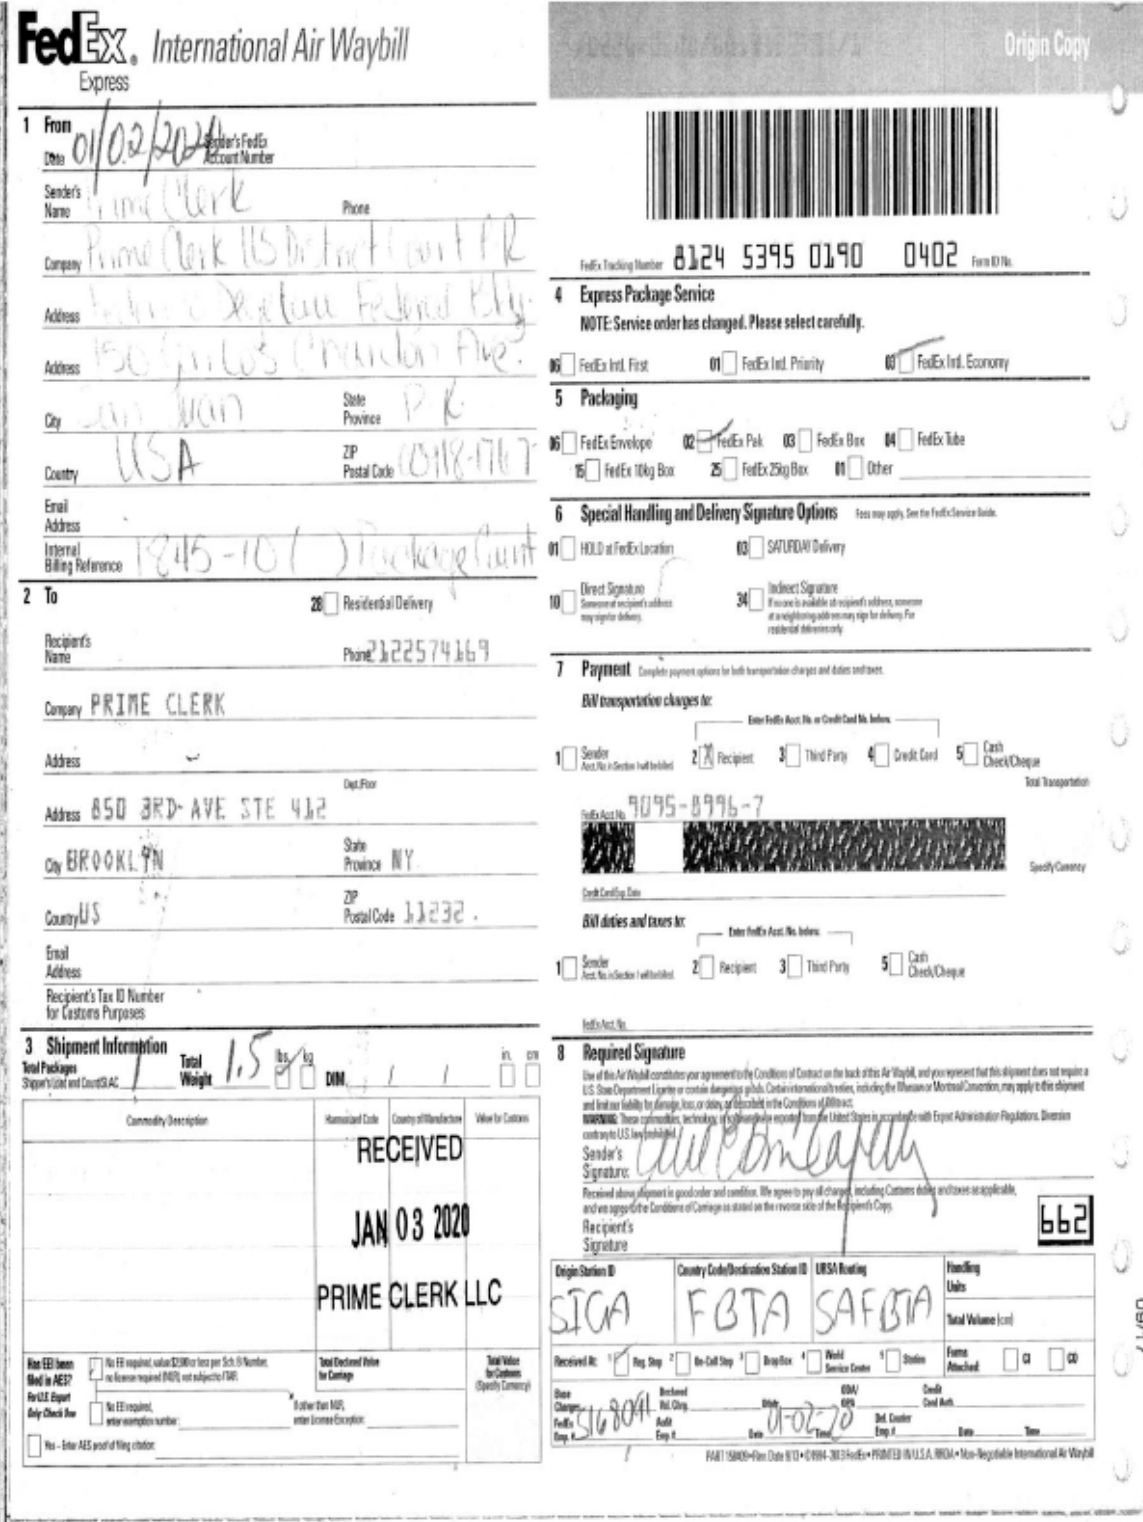 FedEx® International Air Waybill
Express
Origin Copy
1 From
Date 01/02/2020 Sender's FedEx Account Number
Sender's Name Prime Clerk Phone
Company Prime Clerk US District Court P R
Address Federal Bldg.
Address 150 Carlos Chardon Ave.
City San Juan State Province P R.
Country USA ZIP Postal Code 00918-1767
Email Address
Internal Billing Reference 1845-10 ( ) Package Count
2 To
28 Residential Delivery
Recipient's Name Phone 2122574169
Company PRIME CLERK
Address
Dept./Floor
Address 850 3RD-AVE STE 412
City BROOKLYN State Province NY
Country US ZIP Postal Code 11232.
Email Address
Recipient's Tax ID Number for Customs Purposes
3 Shipment Information
Total Packages 1 Total Weight 1.5 lbs. kg DIM. / / in. cm
Shipper's Load and Count/SLAC
Commodity Description Harmonized Code Country of Manufacture Value for Customs
RECEIVED
JAN 03 2020
PRIME CLERK LLC
Has EEI been filed in AES?
For U.S. Export Only: Check One
No EEI required, value $2500 or less per Sch. B Number, no license required (NLR), not subject to ITAR.
No EEI required, enter exemption number:
If other than NLR, enter License Exception:
Yes – Enter AES proof of filing citation:
Total Declared Value for Carriage
Total Value for Customs (Specify Currency)
FedEx Tracking Number 8124 5395 0190 0402 Form ID No.
4 Express Package Service
NOTE: Service order has changed. Please select carefully.
06 FedEx Intl. First 01 FedEx Intl. Priority 03 FedEx Intl. Economy
5 Packaging
06 FedEx Envelope 02 FedEx Pak 03 FedEx Box 04 FedEx Tube
15 FedEx 10kg Box 25 FedEx 25kg Box 01 Other
6 Special Handling and Delivery Signature Options Fees may apply. See the FedEx Service Guide.
01 HOLD at FedEx Location 03 SATURDAY Delivery
10 Direct Signature
Someone at recipient's address may sign for delivery.
34 Indirect Signature
If no one is available at recipient's address, someone at a neighboring address may sign for delivery. For residential deliveries only.
7 Payment Complete payment options for both transportation charges and duties and taxes.
Bill transportation charges to:
Enter FedEx Acct. No. or Credit Card No. below.
1 Sender Acct. No. in Section 1 will be billed. 2 X Recipient 3 Third Party 4 Credit Card 5 Cash Check/Cheque
Total Transportation
FedEx Acct. No. 9095-8996-7
Specify Currency
Credit Card Exp. Date
Bill duties and taxes to:
Enter FedEx Acct. No. below.
1 Sender Acct. No. in Section 1 will be billed. 2 Recipient 3 Third Party 5 Cash Check/Cheque
FedEx Acct. No.
8 Required Signature
Use of this Air Waybill constitutes your agreement to the Conditions of Contract on the back of this Air Waybill, and you represent that this shipment does not require a
U.S. State Department License or contain dangerous goods. Certain international treaties, including the Warsaw or Montreal Convention, may apply to this shipment
and limit our liability for damage, loss, or delay, as described in the Conditions of Contract.
WARNING: These commodities, technology, or software were exported from the United States in accordance with Export Administration Regulations. Diversion
contrary to U.S. law prohibited.
Sender's Signature:
Received above shipment in good order and condition. We agree to pay all charges, including Customs duties and taxes as applicable,
and we agree to the Conditions of Carriage as stated on the reverse side of the Recipient's Copy.
Recipient's Signature
662
Origin Station ID Country Code/Destination Station ID URSA Routing Handling Units
SIGA FBTA SAFBTA Total Volume (cm)
Received At: 1 Reg. Stop 2 On-Call Stop 3 Drop Box 4 World Service Center 5 Station Forms Attached CI CO
Base Charges Declared Val. Chrg. Other ODA/OPA Credit Card Auth.
FedEx Emp. # 5168091 Audit Emp.# Date 01-02-20 Time Del. Courier Emp.# Date Time
PART 158409 • Rev. Date 9/13 • ©1994-2013 FedEx • PRINTED IN U.S.A. RRDA • Non-Negotiable International Air Waybill